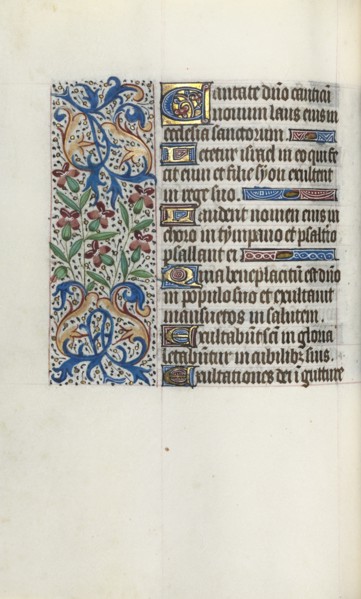 Cantate dño canticū
nouum laus eius in
ecclesia sanctorum.
Letetur israel in eo qui fe
cit eum et filie syon exultent
in rege suo.
Laudent nomen eius in
choro in tympano et psalterio
psallant ei
Quia beneplacitū est dño
in populo suo et exaltauit
mansuetos in salutem.
Exultabūt sc̄i in gloria
letabūtur in cubilibꝫ suis.
Exultationes dei ī gutture